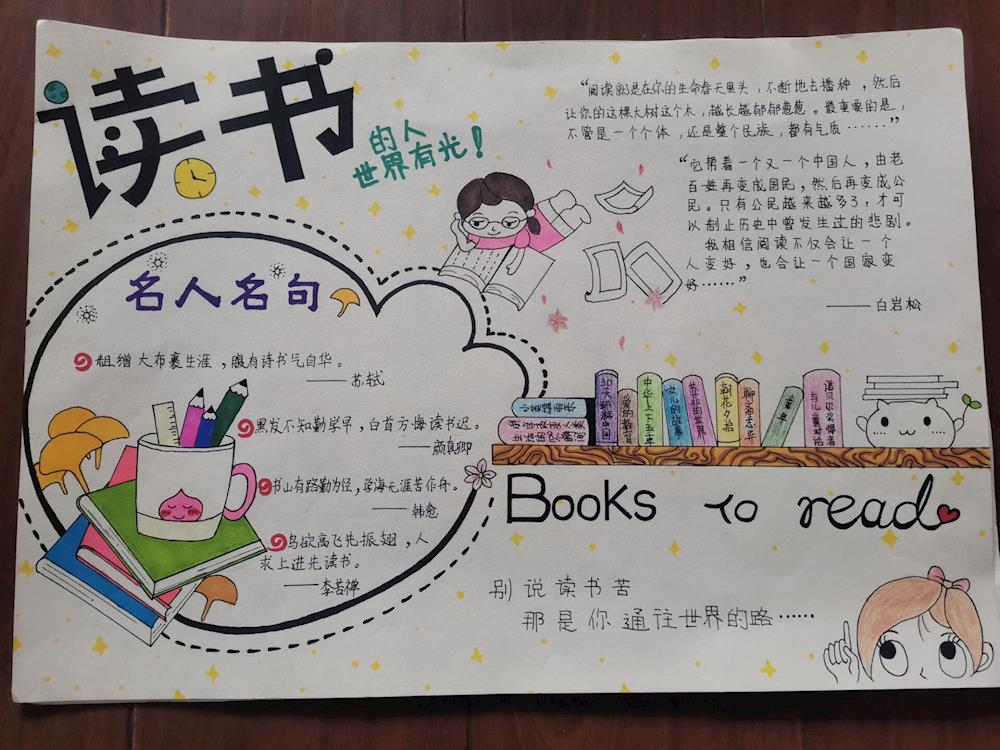 读书
的人
世界有光！
“阅读就是在你的生命春天里头，不断地去播种，然后
让你的这棵大树这个木，越长越郁郁葱葱。最重要的是，
不管是一个个体，还是整个民族，都有气质……”
“它帮着一个又一个中国人，由老
百姓再变成国民，然后再变成公
民。只有公民越来越多了，才可
以制止历史中曾发生过的悲剧。
我相信阅读不仅会让一个
人变好，也会让一个国家变
好……”
——白岩松
名人名句
粗缯大布裹生涯，腹有诗书气自华。
——苏轼
黑发不知勤学早，白首方悔读书迟。
——颜真卿
书山有路勤为径，学海无涯苦作舟。
——韩愈
鸟欲高飞先振翅，人
求上进先读书。
——李苦禅
生活的50个瞬间
30天环游中国
爱的教育
中华上下五千
女儿的故事
苏菲的世界
朝花夕拾
聊斋志异
童年
诺贝尔奖得者
与儿童对话
Books to read
别说读书苦
那是你通往世界的路……